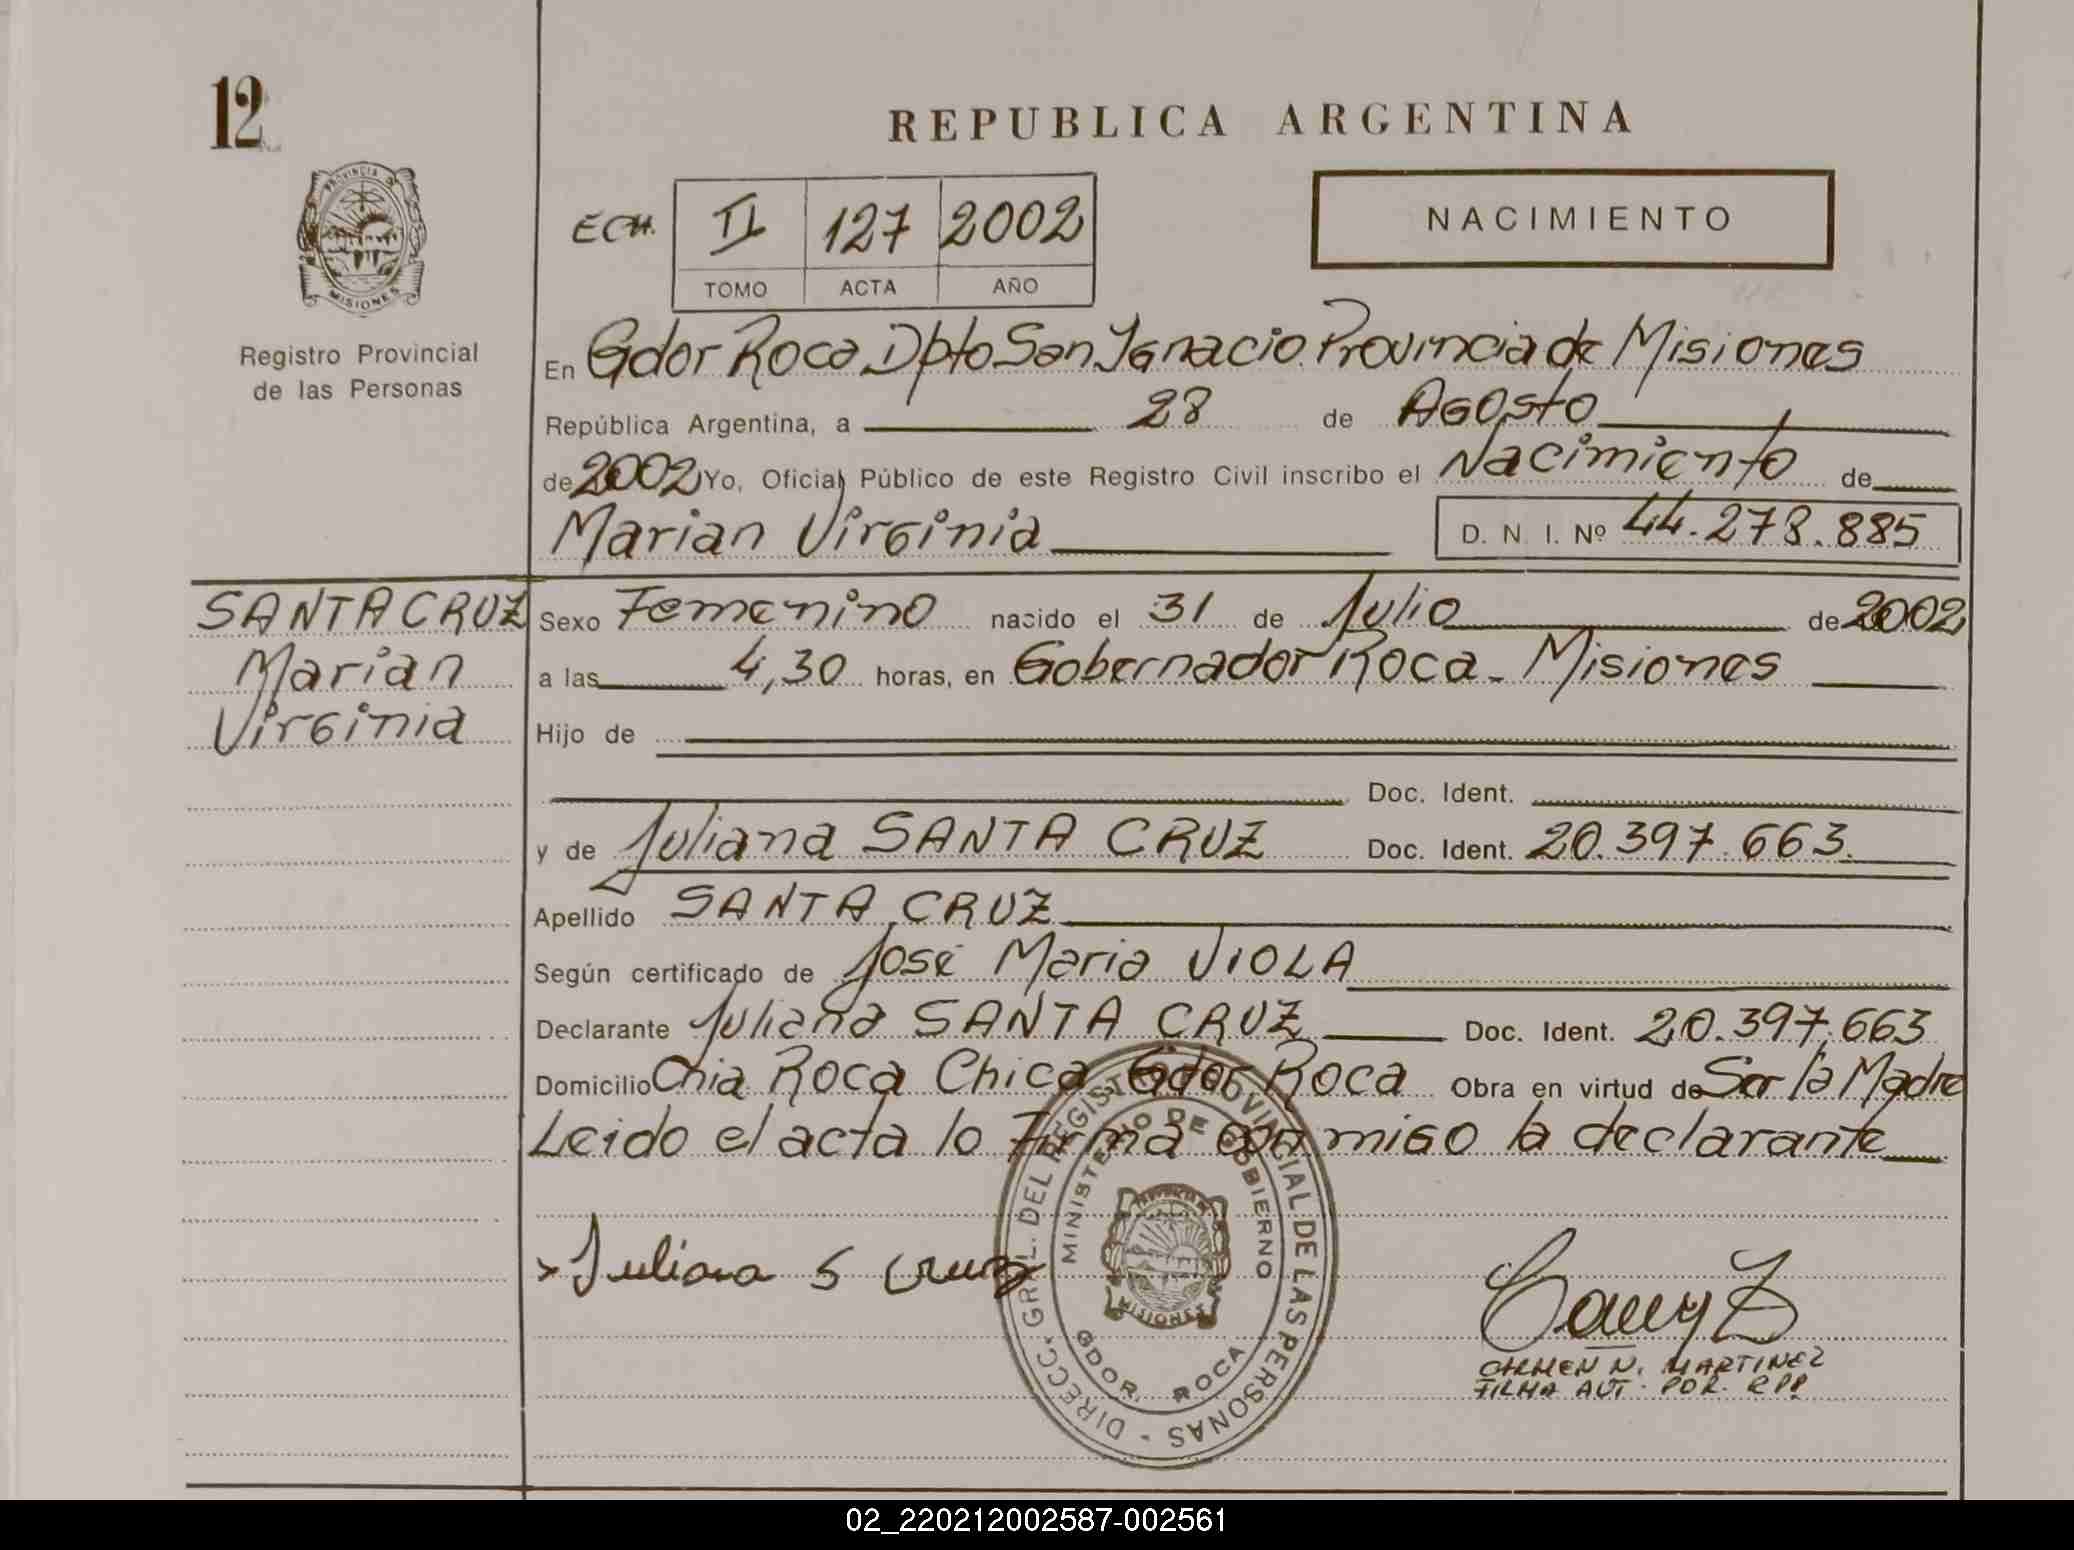 12
REPUBLICA ARGENTINA
PROVINCIA DE
MISIONES
Registro Provincial
de las Personas
ECH. II 127 2002
TOMO ACTA AÑO
NACIMIENTO
En Gdor Roca Dpto San Ignacio Provincia de Misiones
República Argentina, a 28 de Agosto
de 2002 Yo, Oficial Público de este Registro Civil inscribo el Nacimiento de
Marian Virginia D. N. I. Nº 44.278.885
SANTA CRUZ
Marian
Virginia
Sexo Femenino nacido el 31 de Julio de 2002
a las 4,30 horas, en Gobernador Roca - Misiones
Hijo de
Doc. Ident.
y de Juliana SANTA CRUZ Doc. Ident. 20.397.663.
Apellido SANTA CRUZ
Según certificado de José Maria VIOLA
Declarante Juliana SANTA CRUZ Doc. Ident. 20.397.663
Domicilio Chia Roca Chica Gdor Roca Obra en virtud de Ser la Madre
Leido el acta lo Firma con migo la declarante
Juliana S Cruz
DIRECC. GRAL. DEL REGISTRO PROVINCIAL DE LAS PERSONAS -
MINISTERIO DE GOBIERNO
MISIONES
GDOR. ROCA
CARMEN N. MARTINEZ
FIRMA AUT. POR. RPP
02_220212002587-002561